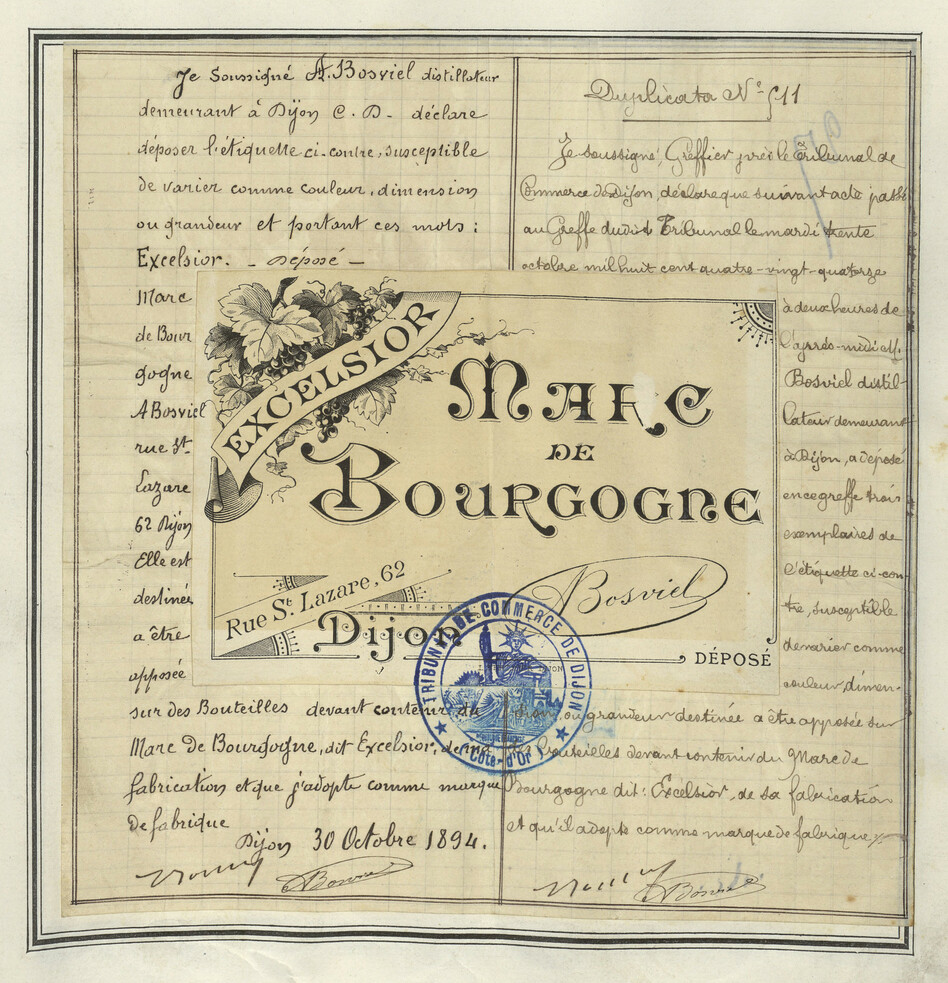 Je soussigné A. Bosviel distillateur
demeurant à Dijon C. D. déclare
déposer l'étiquette ci-contre, susceptible
de varier comme couleur, dimension
ou grandeur et portant ces mots :
Excelsior. _ Déposé _
Marc
de Bour
gogne
A Bosviel
rue St.
Lazare
62 Dijon
Elle est
destinée
a être
apposée
sur des Bouteilles devant contenir du
Marc de Bourgogne, dit Excelsior, de ma
fabrication et que j'adopte comme marque
de fabrique
Dijon 30 Octobre 1894.
A Bosviel
EXCELSIOR
MARC
DE
BOURGOGNE
Rue St. Lazare, 62
Dijon
Bosviel
DÉPOSÉ
TRIBUNAL DE COMMERCE DE DIJON
(Côte-d'Or)
Duplicata No 511
Je soussigné, Greffier près le Tribunal de
Commerce de Dijon, déclare que suivant acte passé
au Greffe dudit Tribunal le mardi trente
octobre mil huit cent quatre-vingt-quatorze
à deux heures de
l'après-midi M.
Bosviel distil-
lateur demeurant
à Dijon, a déposé
en ce greffe trois
exemplaires de
l'étiquette ci-con-
tre, susceptible
de varier comme
couleur, dimen-
sion, ou grandeur destinée a être apposée sur
des Bouteilles devant contenir du Marc de
Bourgogne dit : Excélsior, de sa fabrication
et qu'il adopte comme marque de fabrique
A Bosviel